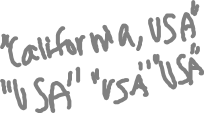 "California, USA"
"USA" "USA" "USA"